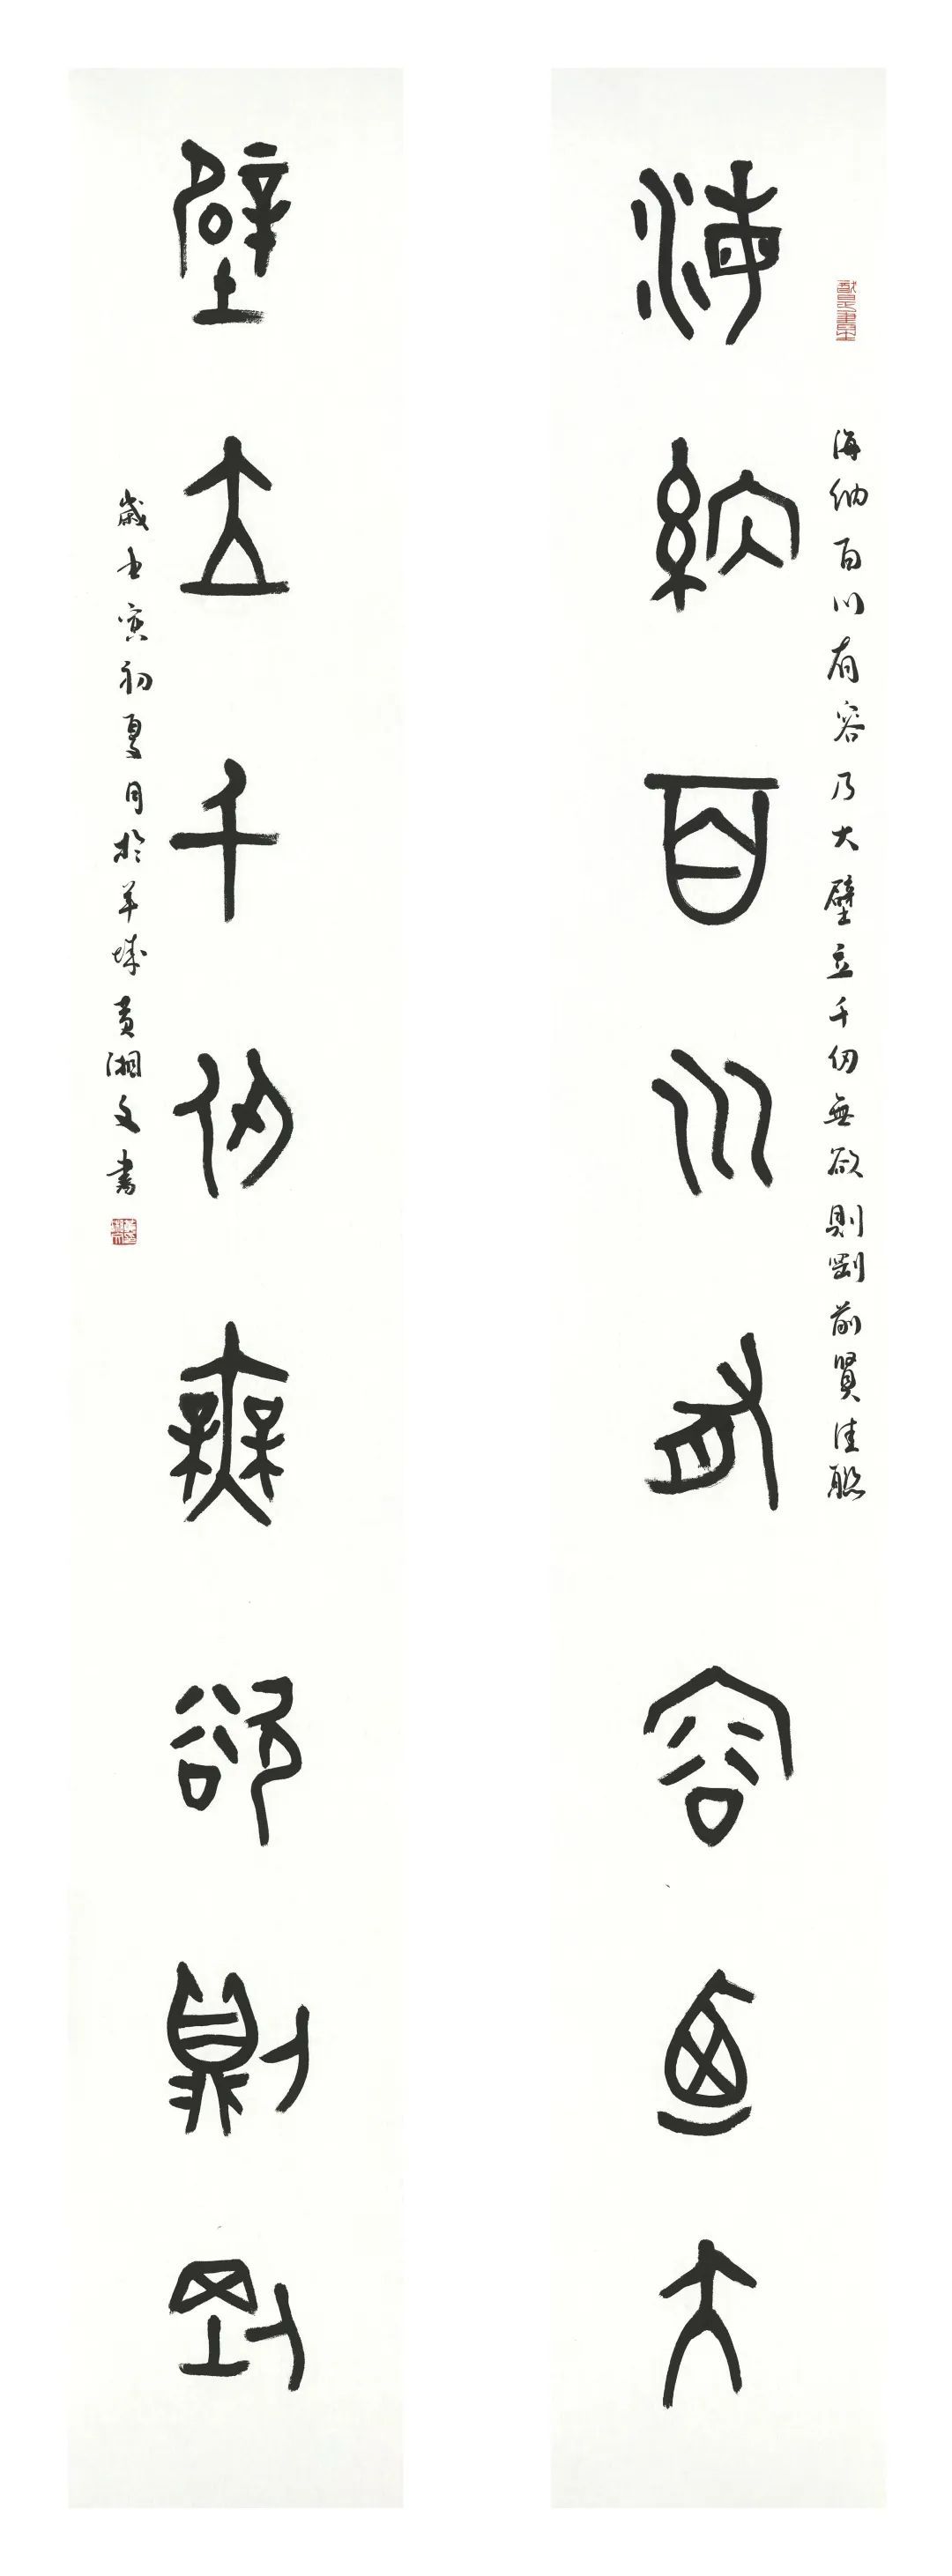 海納百川有容乃大
海納百川有容乃大壁立千仞無欲則剛前賢佳聯
壁立千仞無欲則剛
歲壬寅初夏月於羊城黃湘文書